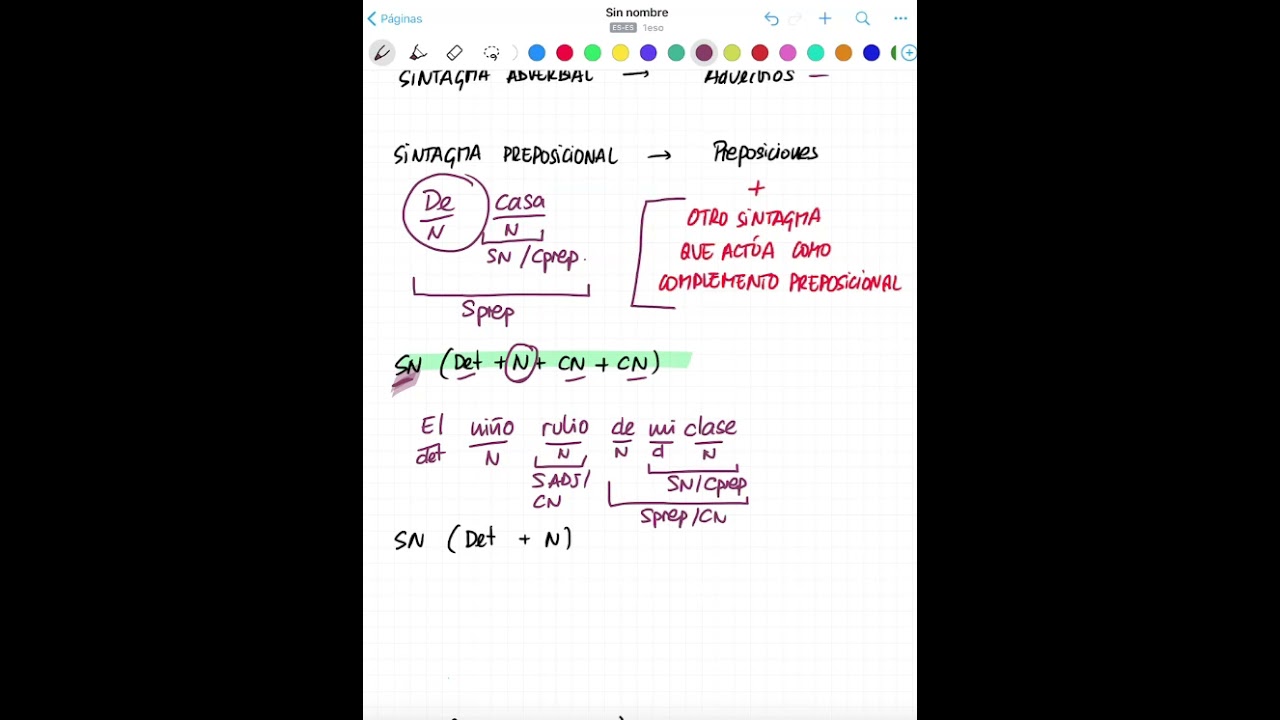 Páginas
Sin nombre
ES-ES 1eso
SINTAGMA ADVERBIAL → Adverbios
SINTAGMA PREPOSICIONAL → Preposiciones
+
OTRO SINTAGMA
QUE ACTÚA COMO
COMPLEMENTO PREPOSICIONAL
De casa
N N
SN/Cprep.
Sprep
SN (Det + N + CN + CN)
El niño rulio de mi clase
det N N N d N
SADJ/ SN/Cprep
CN Sprep/CN
SN (Det + N)